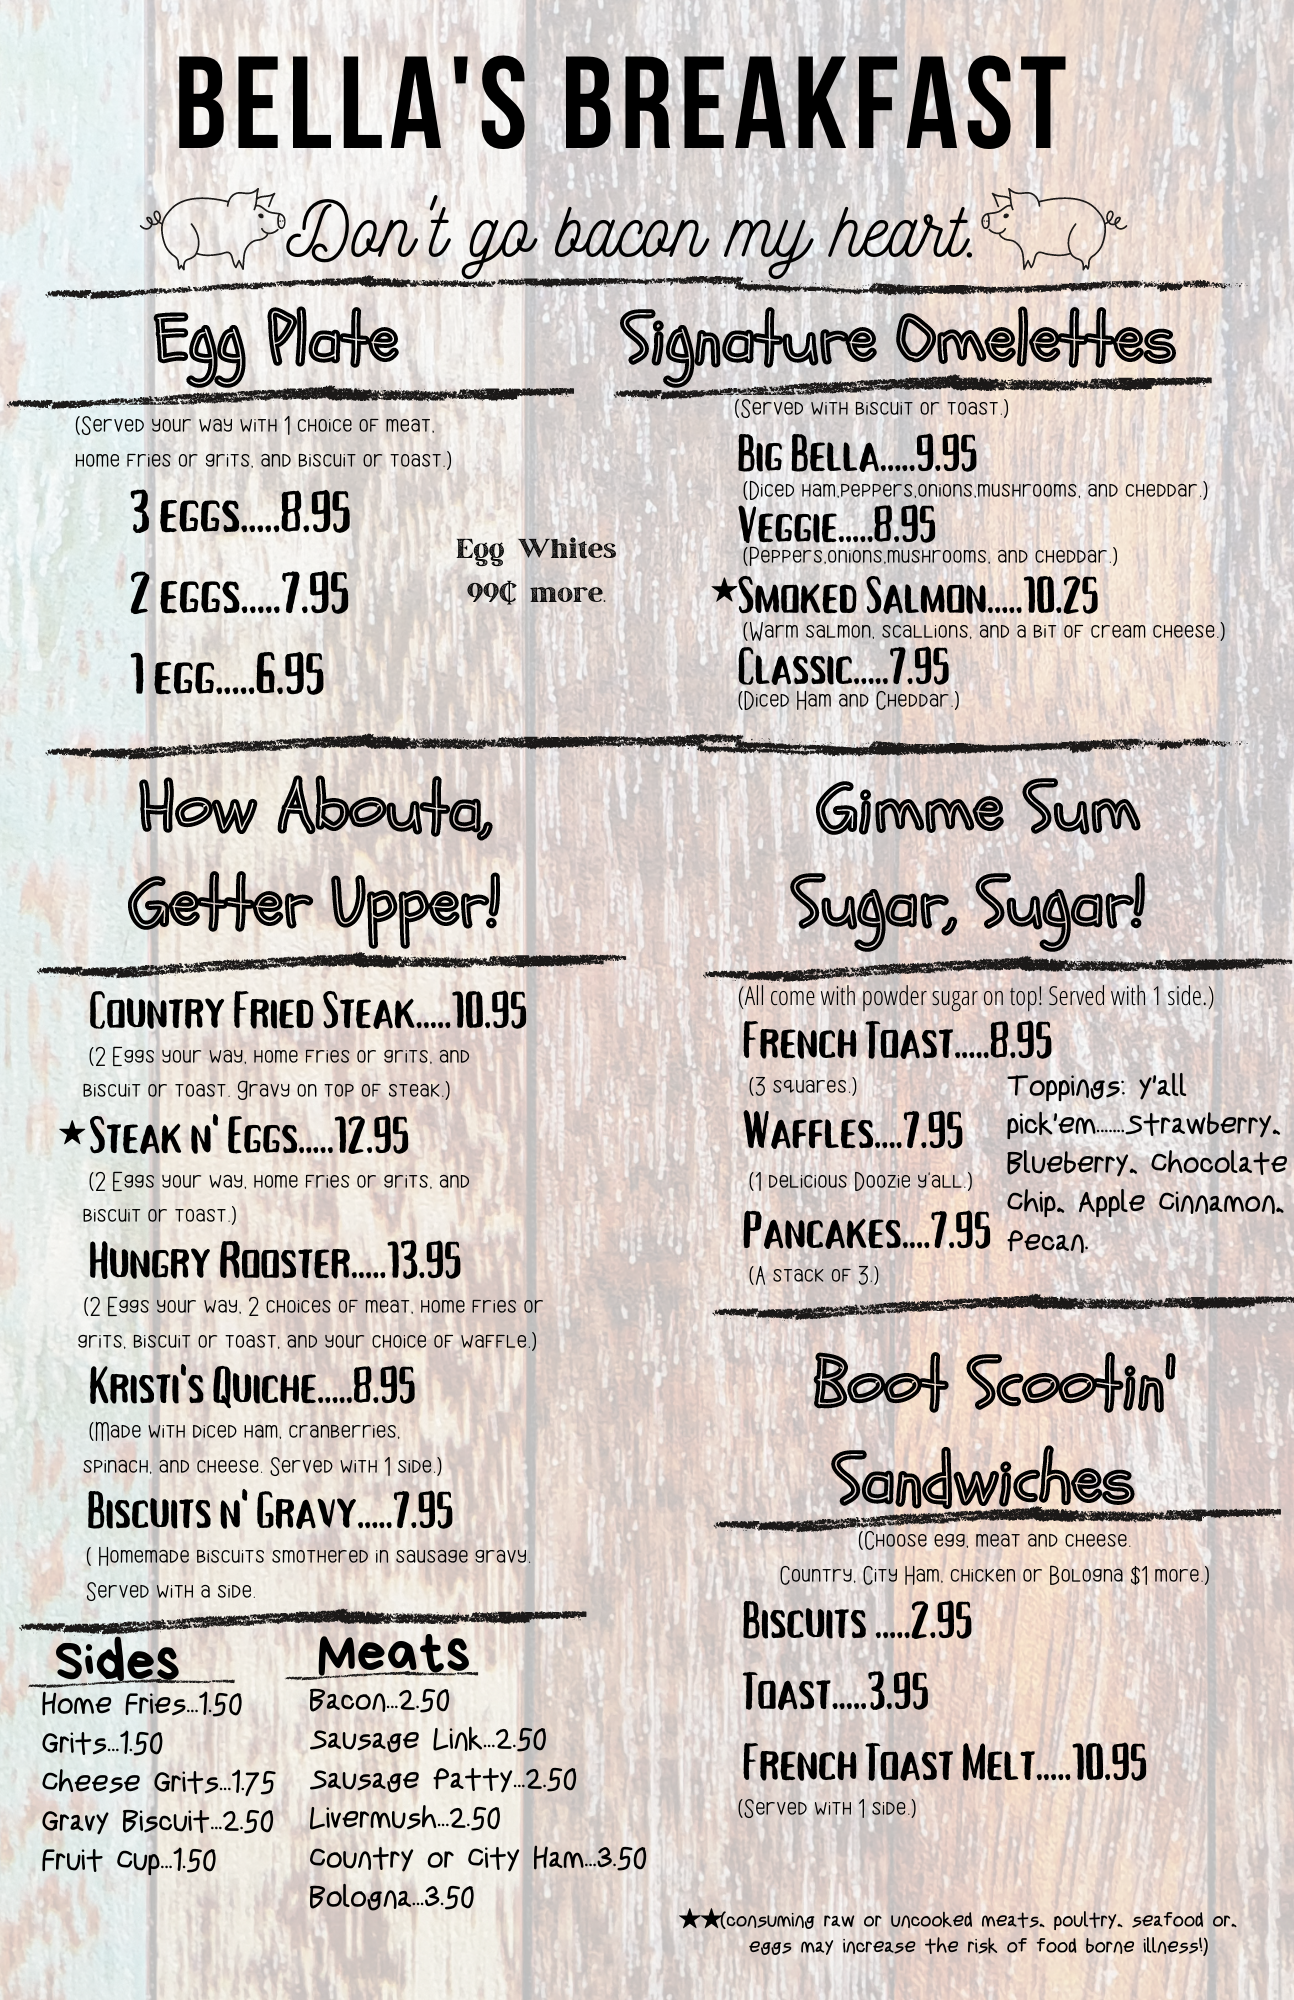 BELLA'S BREAKFAST
Don't go bacon my heart.
Egg Plate
(Served your way with 1 choice of meat,
home fries or grits, and biscuit or toast.)
3 eggs.....8.95
2 eggs.....7.95
1 egg.....6.95
Egg Whites
99¢ more.
Signature Omelettes
(Served with biscuit or toast.)
Big Bella.....9.95
(Diced ham,peppers,onions,mushrooms, and cheddar.)
Veggie.....8.95
(Peppers,onions,mushrooms, and cheddar.)
★Smoked Salmon.....10.25
(Warm salmon, scallions, and a bit of cream cheese.)
Classic.....7.95
(Diced Ham and Cheddar.)
How Abouta,
Getter Upper!
Country Fried Steak.....10.95
(2 Eggs your way, home fries or grits, and
biscuit or toast. Gravy on top of steak.)
★Steak n' Eggs.....12.95
(2 Eggs your way, home fries or grits, and
biscuit or toast.)
Hungry Rooster.....13.95
(2 Eggs your way, 2 choices of meat, home fries or
grits, biscuit or toast, and your choice of waffle.)
Kristi's Quiche.....8.95
(Made with diced ham, cranberries,
spinach, and cheese. Served with 1 side.)
Biscuits n' Gravy.....7.95
( Homemade biscuits smothered in sausage gravy.
Served with a side.
Gimme Sum
Sugar, Sugar!
(All come with powder sugar on top! Served with 1 side.)
French Toast.....8.95
(3 squares.)
Waffles....7.95
(1 delicious Doozie y'all.)
Pancakes....7.95
(A stack of 3.)
Toppings: y'all
pick'em.......Strawberry,
Blueberry, Chocolate
Chip, Apple Cinnamon,
Pecan.
Boot Scootin'
Sandwiches
(Choose egg, meat and cheese.
Country, City Ham, chicken or Bologna $1 more.)
Biscuits .....2.95
Toast.....3.95
French Toast Melt.....10.95
(Served with 1 side.)
Sides
Home Fries...1.50
Grits...1.50
Cheese Grits...1.75
Gravy Biscuit...2.50
Fruit Cup...1.50
Meats
Bacon...2.50
Sausage Link...2.50
Sausage Patty...2.50
Livermush...2.50
Country or City Ham...3.50
Bologna...3.50
★★(consuming raw or uncooked meats, poultry, seafood or,
eggs may increase the risk of food borne illness!)